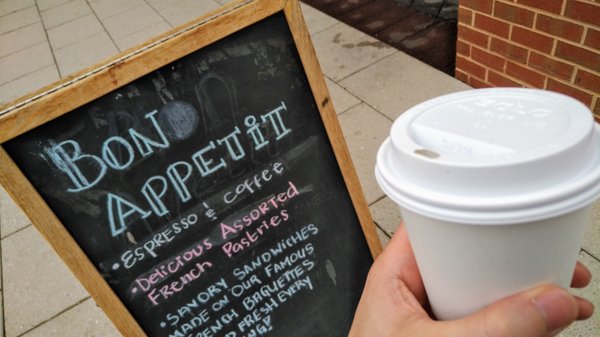 BON
APPETIT
• ESPRESSO & COFFEE
• Delicious Assorted
French Pastries
• SAVORY SANDWICHES
MADE ON OUR FAMOUS
FRENCH BAGUETTES
FRESH EVERY
SOLO